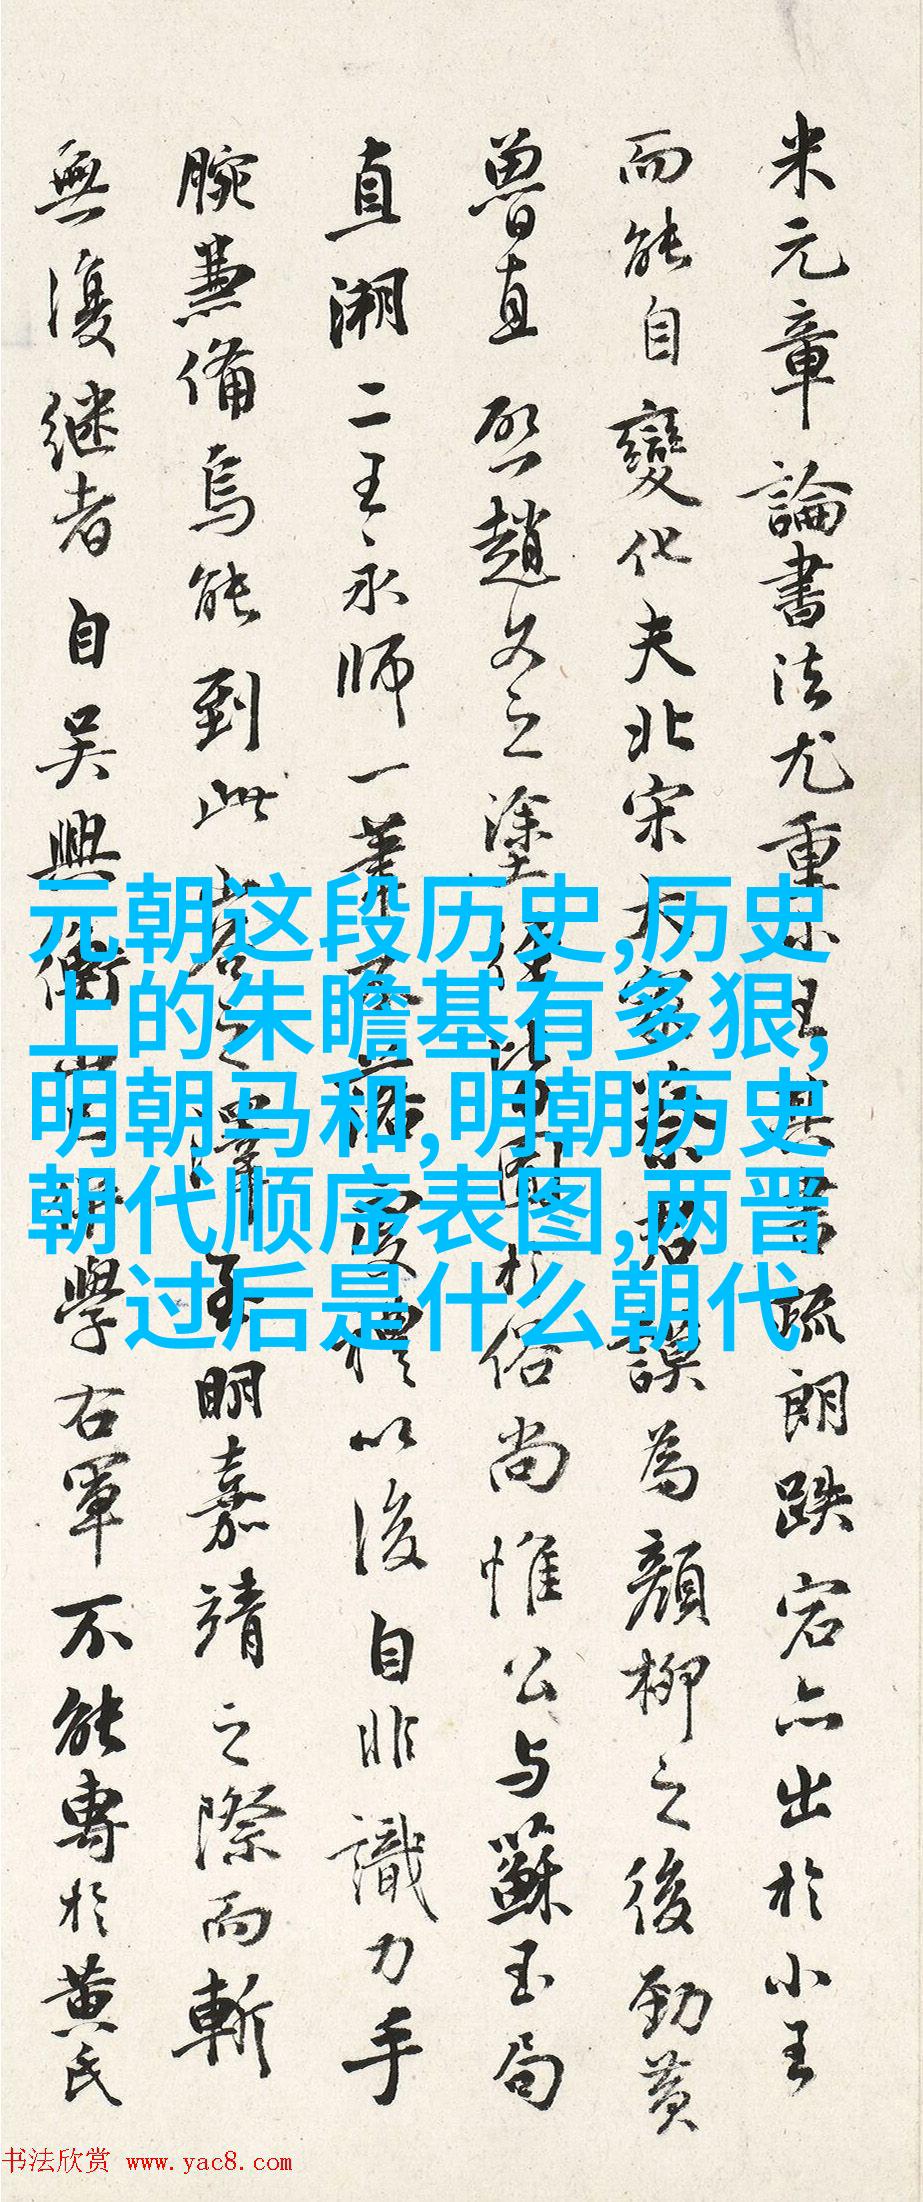 米元章論書法尤重小王其書疏朗跌宕亦出於小王
而能自變化夫北宋大家蔡君謨為顏柳之後勁黃
魯直啓趙文之塗徑皆囿於俗尚惟公与蘇玉局
直溯二王永師一以後自非識力手
腕兼備烏能到此之澤至明嘉靖之際而斬
無復继者自吳興衡山皆學右軍不能專於黃氏
元朝这段历史,历史
上的朱瞻基有多狠,
明朝马和,明朝历史
朝代顺序表图,两晋
过后是什么朝代
书法欣赏 www.yac8.com